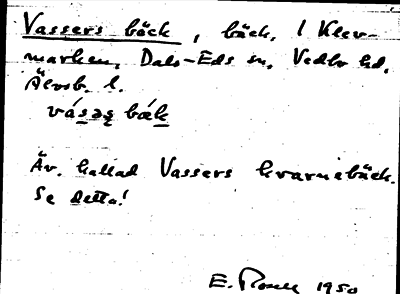 Vassers bäck, bäck, i Klev-
marken, Dals-Eds sn, Vedbo hd,
Älvsb. l.
vásəʂ bäk
Äv. kallad Vassers kvarnebäck.
Se detta!
E. 1950